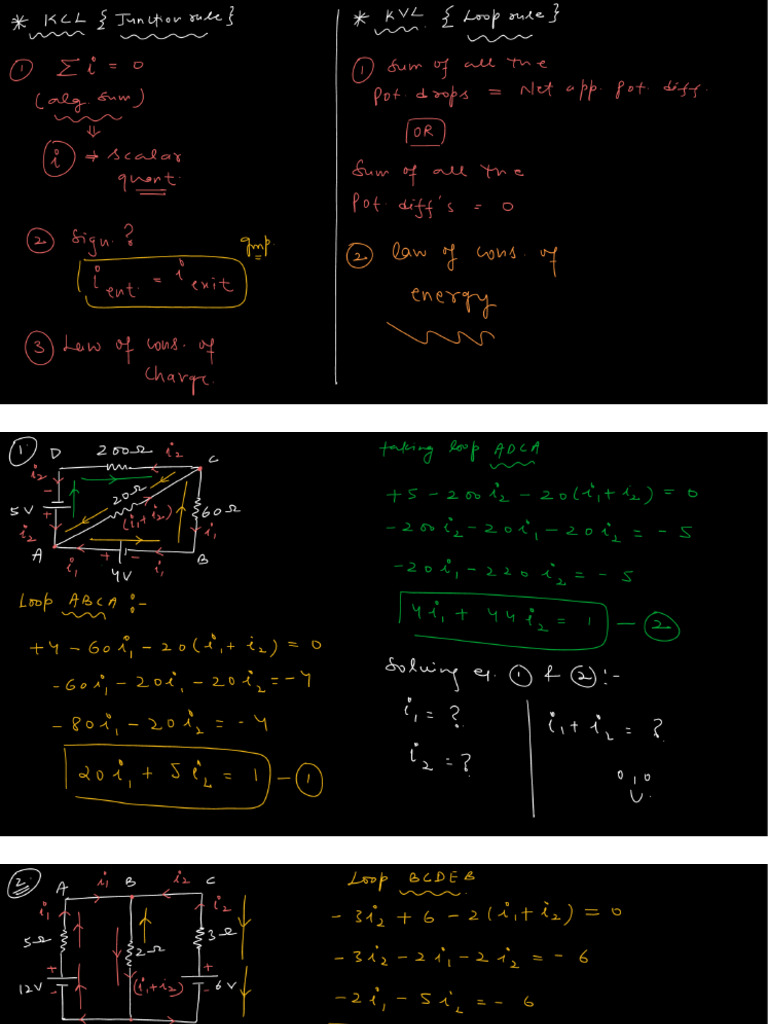 * KCL { Junction rule}
① Σ i = 0
(alg. sum)
⇓
i → scalar
quant.
② Sign. ?
Imp.
i ent. = i exit
③ Law of cons. of
charge.
* KVL { Loop rule}
① Sum of all the
Pot. drops = Net app. pot. diff.
OR
Sum of all the
Pot. diff's = 0
② Law of cons. of
energy
①
D 200Ω i₂ C
i₂
- 20Ω
5V (i₁+i₂) 60Ω
+ i₁
i₂
A + - B
i₁ 4V i₁
Loop ABCA :-
+4 - 60i₁ - 20(i₁ + i₂) = 0
-60i₁ - 20i₁ - 20i₂ = -4
-80i₁ - 20i₂ = -4
20i₁ + 5i₂ = 1 - ①
taking loop ADCA
+5 - 200i₂ - 20(i₁+i₂) = 0
-200i₂ - 20i₁ - 20i₂ = -5
-20i₁ - 220i₂ = -5
4i₁ + 44i₂ = 1 - ②
Solving eq. ① & ② :-
i₁ = ?
i₂ = ?
i₁ + i₂ = ?
②
A i₁ B i₂ C
i₁ i₂
5Ω 2Ω 3Ω
+ +
12V - (i₁+i₂) - 6V
Loop BCDEB
-3i₂ + 6 - 2(i₁+i₂) = 0
-3i₂ - 2i₁ - 2i₂ = -6
-2i₁ - 5i₂ = -6